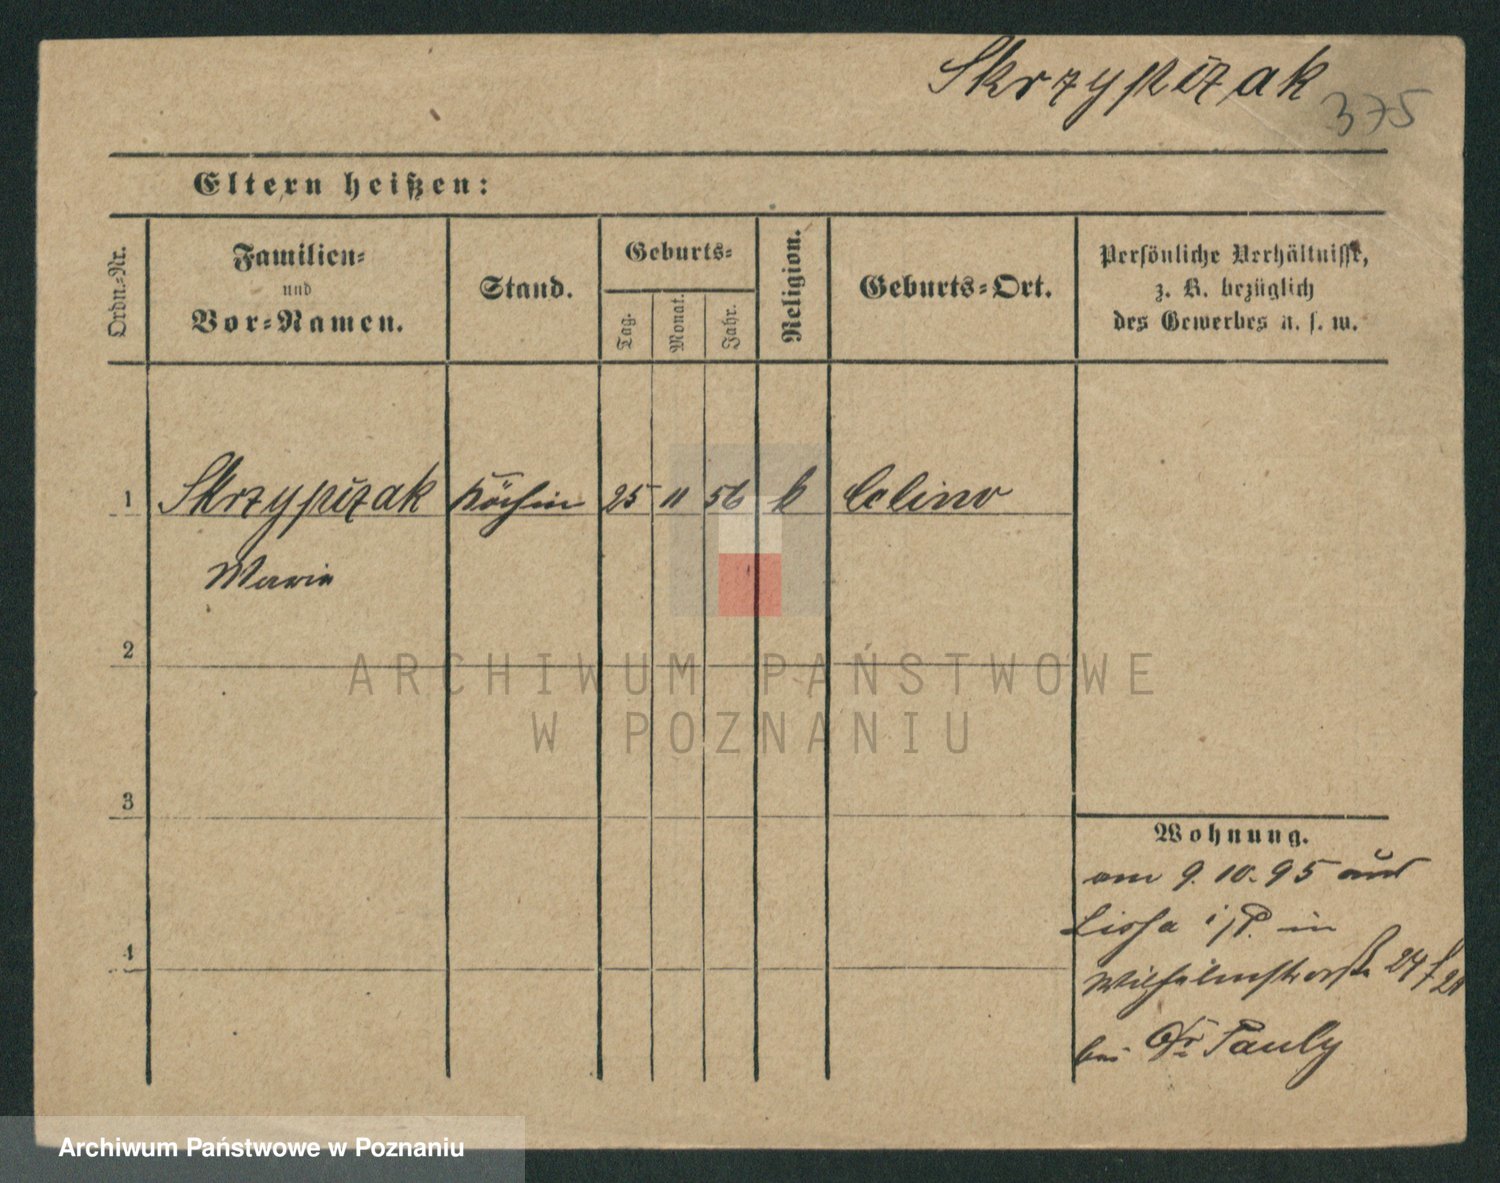 Skrzypczak
375
Eltern heißen:
Ordn.-Nr.
Familien-
und
Vor-Namen.
Stand.
Geburts-
Tag.
Monat.
Jahr.
Religion.
Geburts-Ort.
Persönliche Verhältnisse,
z. B. bezüglich
des Gewerbes u. s. w.
1 Skrzypczak Köchin 25 11 56 k Celino
Marie
2
3
4
Wohnung.
am 9.10.95 aus
Lissa i/P. in
Wilhelmstraße 24
bei Dr Pauly
ARCHIWUM PAŃSTWOWE
W POZNANIU
Archiwum Państwowe w Poznaniu